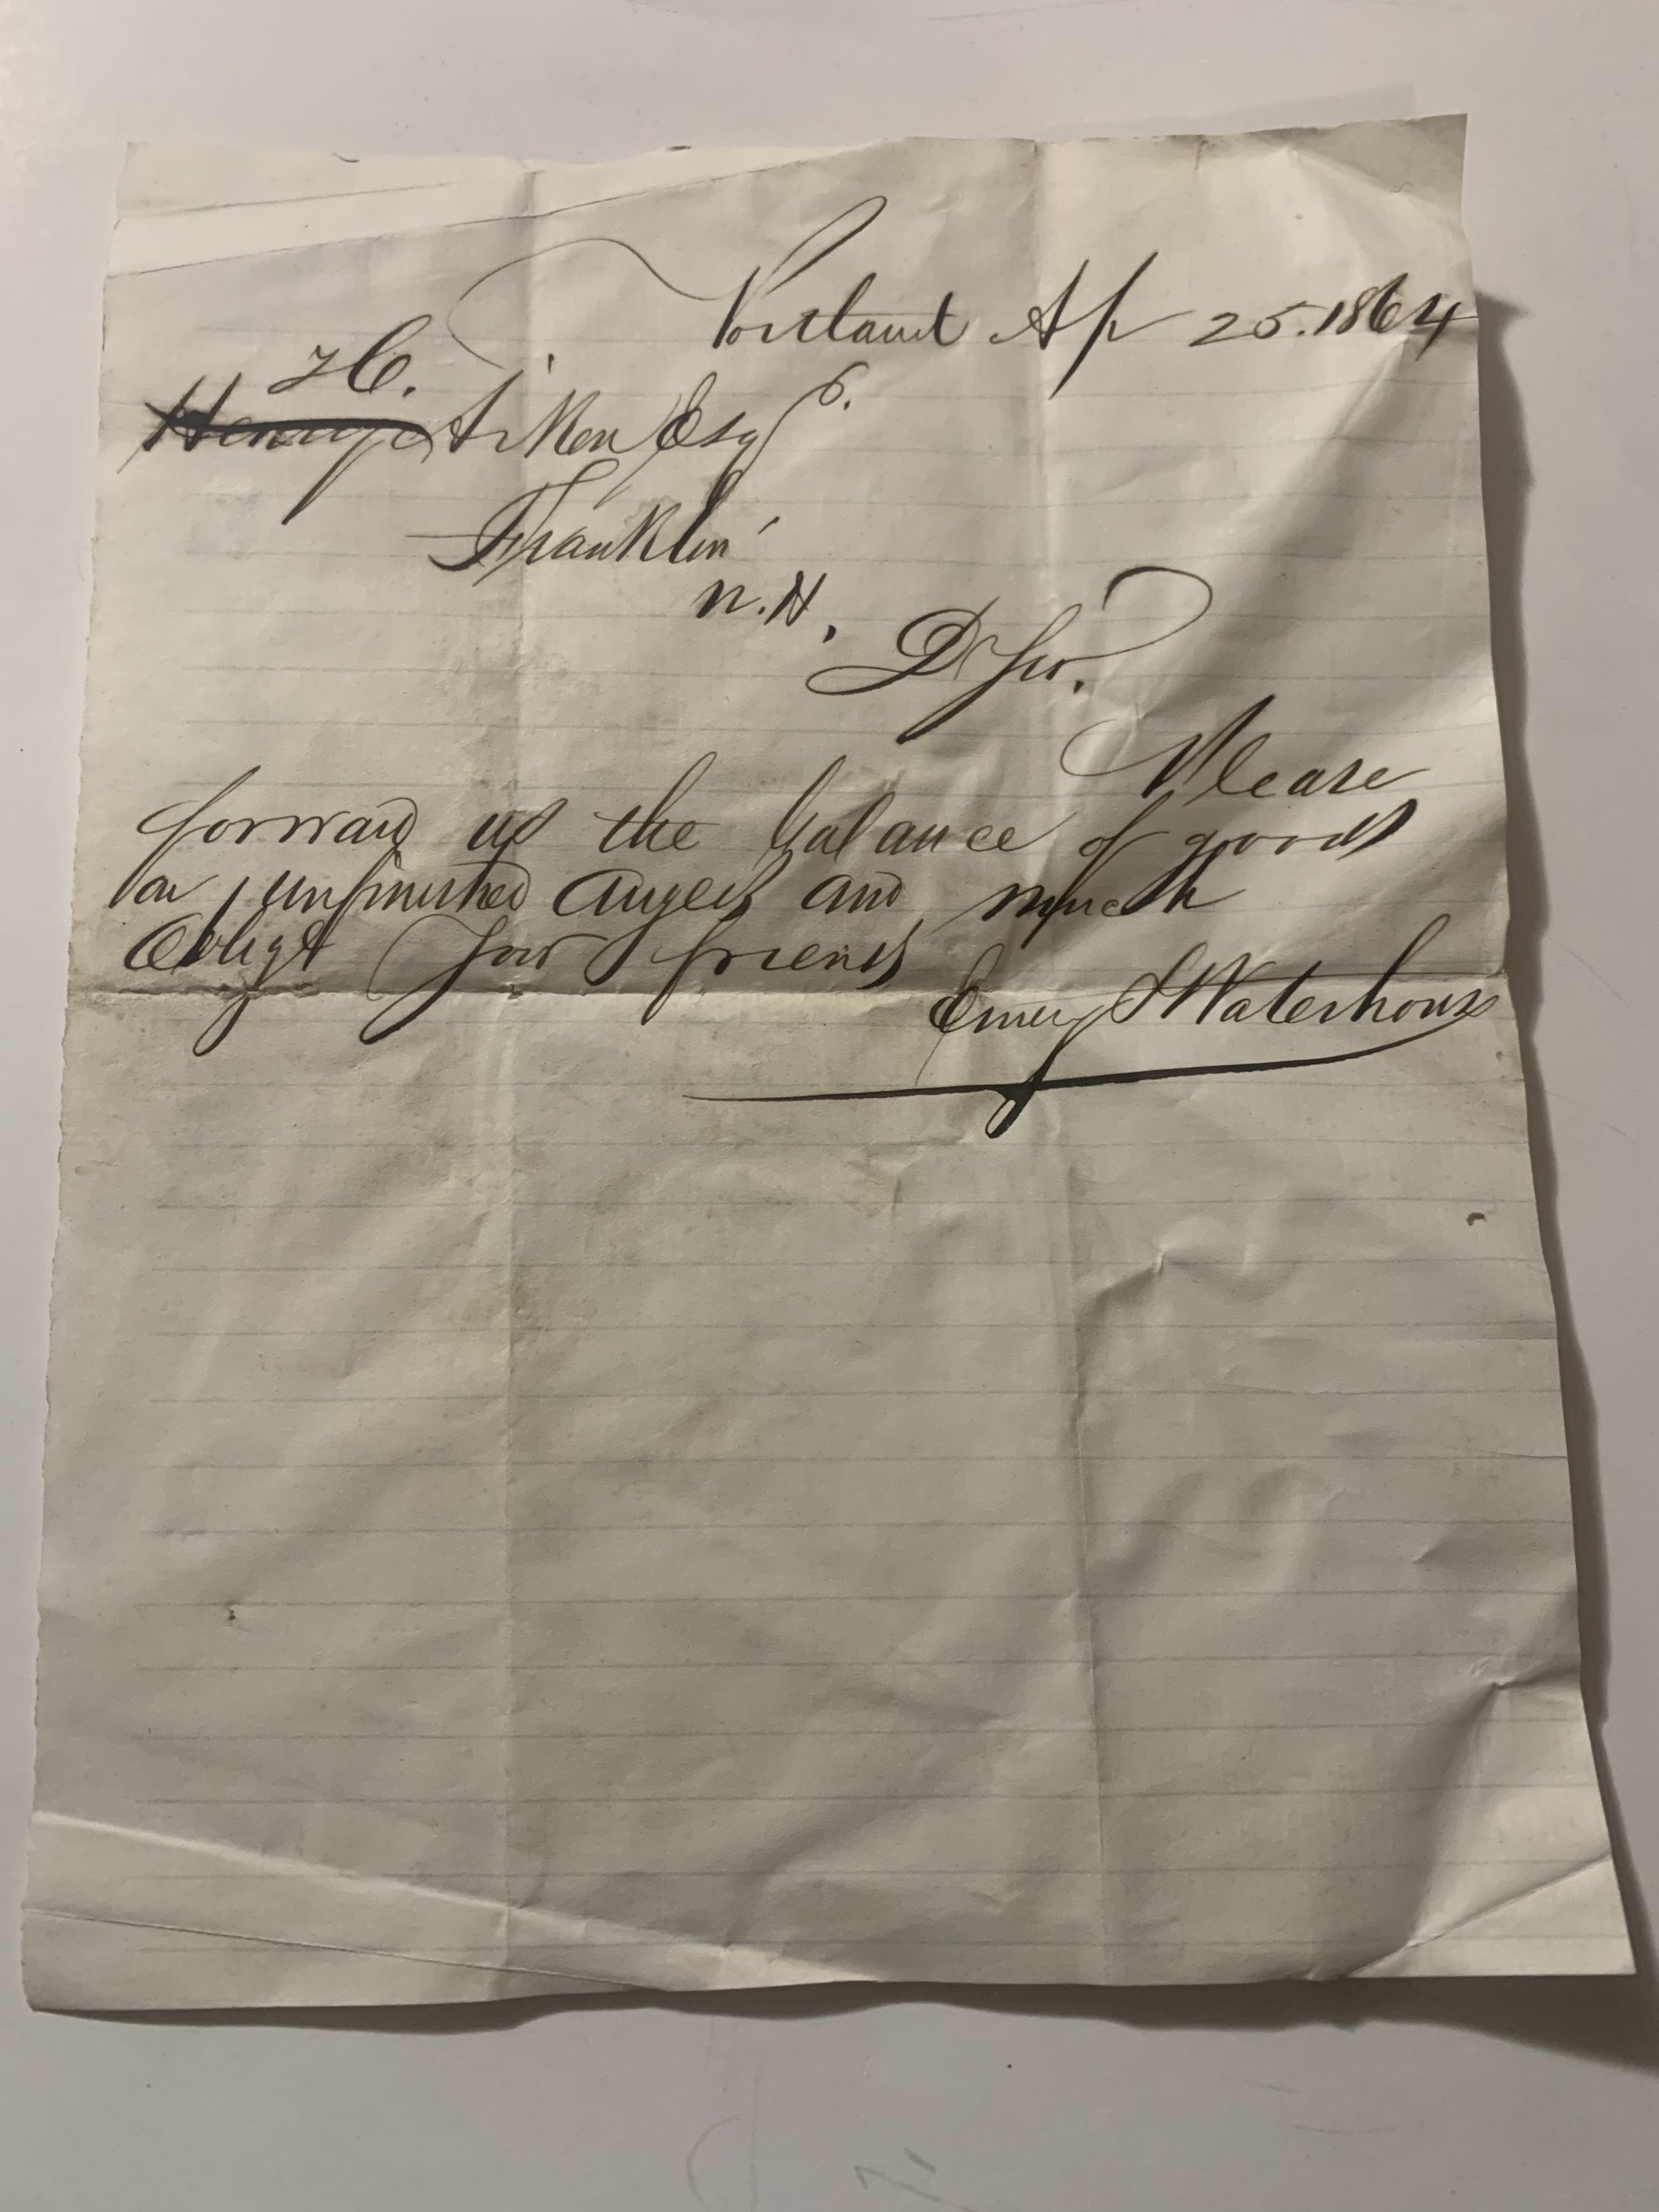 Portland Ap 25. 1864
H.
Henry Aiken Esq.
Franklin
N.H.
D Sir.
Please
forward us the balance of goods
or unfinished Augers and much
Oblige Your friends
Emery & Waterhouse